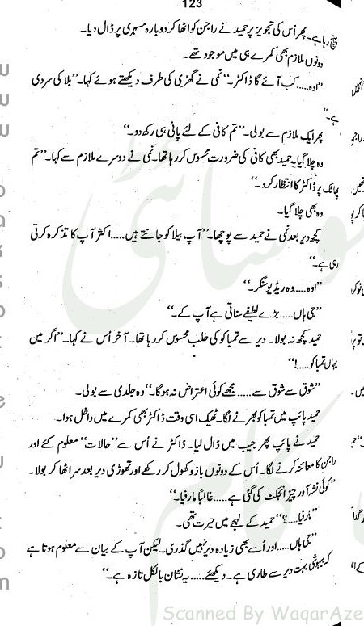 123
پنچ رہا ہے۔ پھر اُس کی تجویز پر حمید نے راجن کو اٹھا کر دوبارہ مسہری پر ڈال دیا۔
دونوں ملازم بھی کمرے ہی میں موجود تھے۔
"اوہ..... کب آئے گا ڈاکٹر۔" نمی نے گھڑی کی طرف دیکھتے ہوئے کہا۔ "بلا کی سردی
ہے۔"
پھر ایک ملازم سے بولی۔ "تم کافی کے لئے پانی ہی رکھ دو۔"
وہ چلا گیا۔ حمید بھی کافی کی ضرورت محسوس کر رہا تھا۔ نمی نے دوسرے ملازم سے کہا۔ "تم
پھاٹک پر ڈاکٹر کا انتظار کرو۔"
وہ بھی چلا گیا۔
کچھ دیر بعد نمی نے حمید سے پوچھا۔ "آپ بیلا کو جانتے ہیں..... اکثر آپ کا تذکرہ کرتی
رہی ہے۔"
"اوہ..... وہ ریڈیو سنگر۔"
"جی ہاں..... بڑے لطیفے سناتی ہے آپ کے۔"
حمید کچھ نہ بولا۔ دیر سے تمباکو کی طلب محسوس کر رہا تھا۔ آخر اُس نے کہا۔ "اگر میں
یہاں تمباکو.....!"
"شوق سے شوق سے..... مجھے کوئی اعتراض نہ ہوگا۔" وہ جلدی سے بولی۔
حمید پائپ میں تمباکو بھرنے لگا۔ ٹھیک اسی وقت ڈاکٹر بھی کمرے میں داخل ہوا۔
حمید نے پائپ پھر جیب میں ڈال لیا۔ ڈاکٹر نے اُس سے "حالات" معلوم کئے اور
راجن کا معائنہ کرنے لگا۔ اُس کے دونوں بازو کھول کر رکھے اور تھوڑی دیر بعد سر اٹھا کر بولا۔
"کوئی نشہ آور چیز انجکٹ کی گئی ہے..... غالباً مارفیا۔"
"مارفیا.....؟" حمید کے لہجے میں حیرت تھی۔
"جی ہاں..... اور ابھی زیادہ دیر نہیں گذری۔ لیکن آپ کے بیان سے معلوم ہوتا ہے
کہ بیہوشی بہت دیر سے طاری ہے۔ دیکھئے..... یہ نشان بالکل تازہ ہے۔"
Scanned By WaqarAze